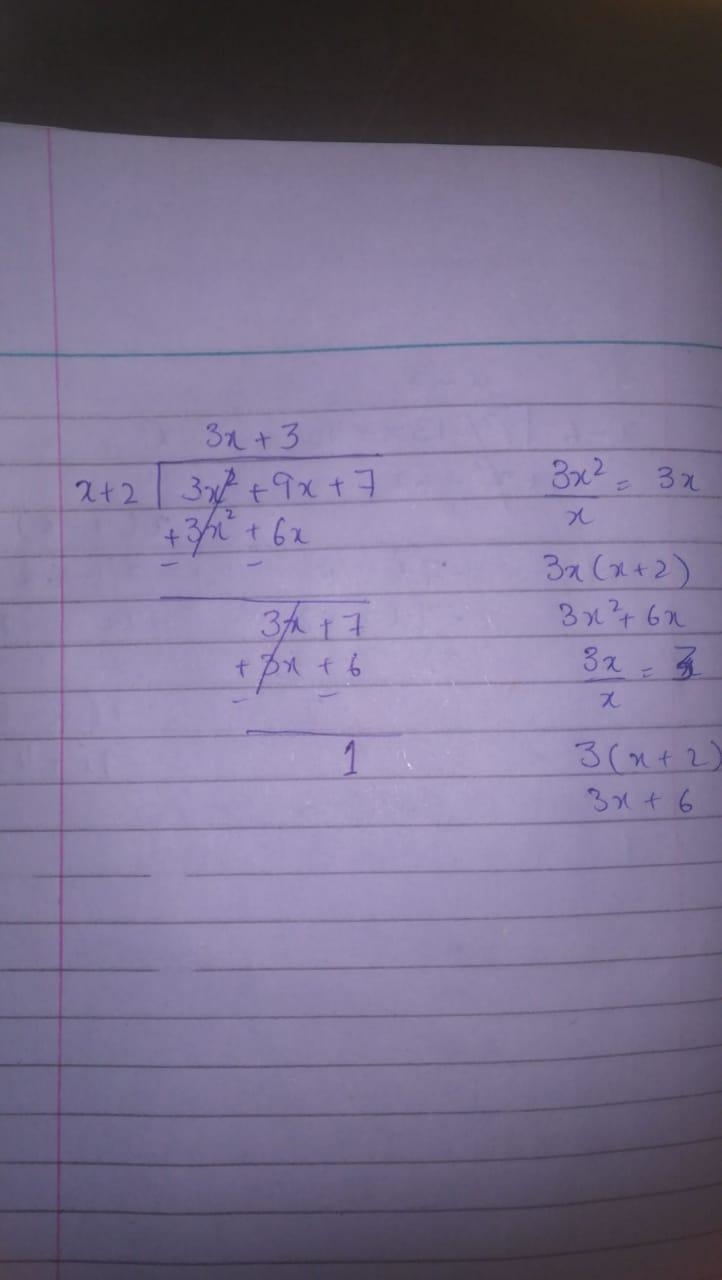 3x + 3
x+2 3x² + 9x + 7
+3x² + 6x
- -
3x + 7
+3x + 6
- -
1
3x²/x = 3x
3x(x+2)
3x²+6x
3x/x = 3
3(x+2)
3x + 6